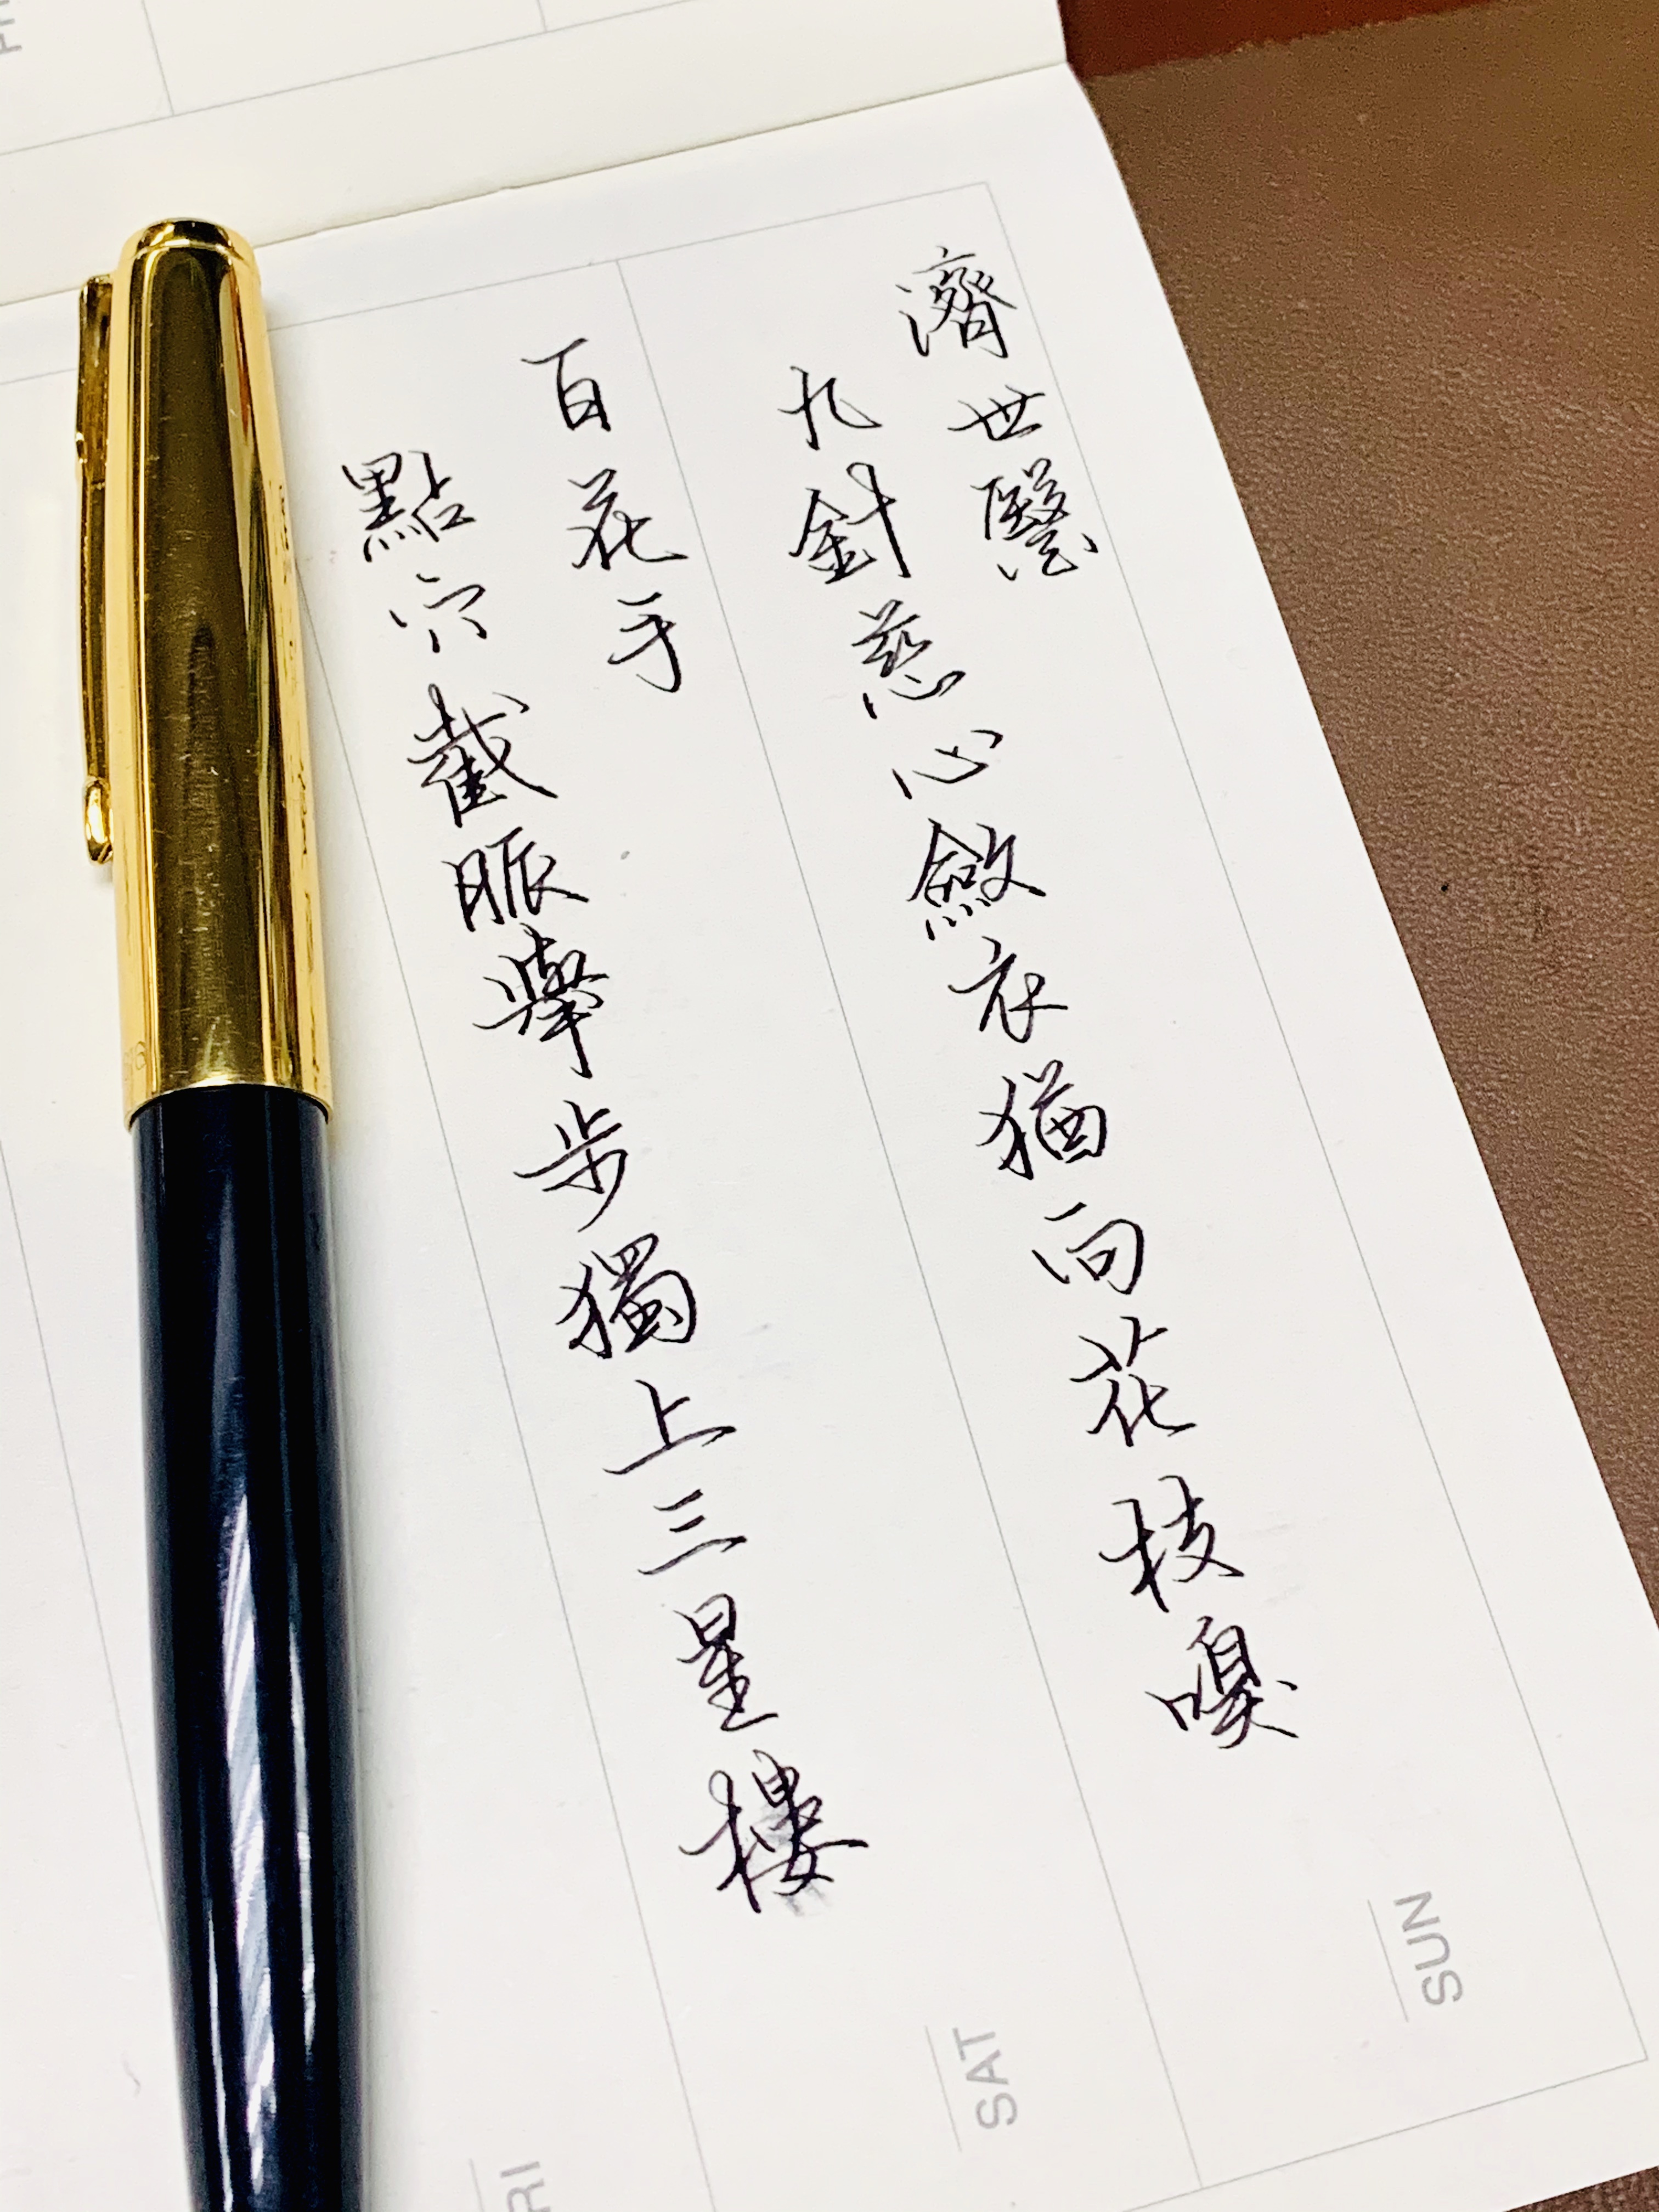 濟世醫
九針慈心斂衣猶向花枝嗅
百花手
點穴截脈舉步獨上三星樓
SUN
SAT
RI